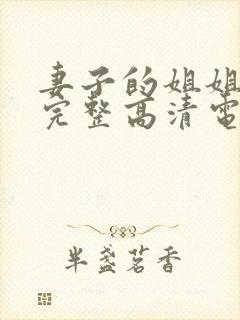 妻子的姐姐
完整高清電
半盏茗香